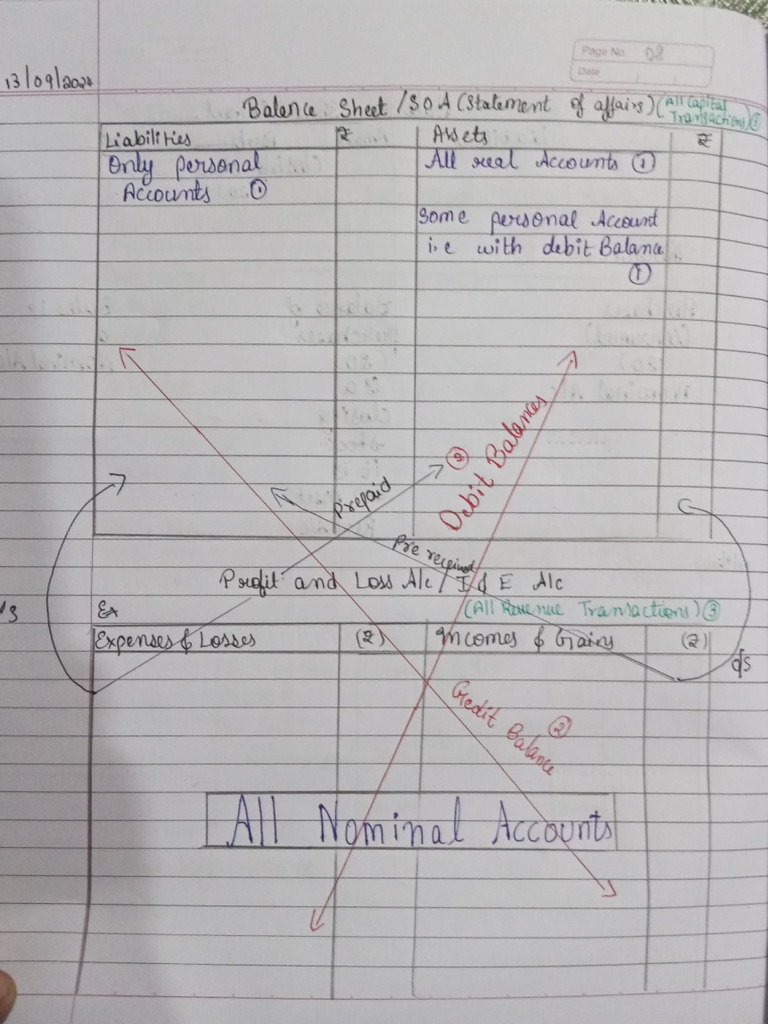 Page No. 08
Date
13/09/2024
Balance Sheet / SOA (Statement of affairs) (All Capital
Transactions) ③
Liabilities ₹ Assets ₹
Only personal
Accounts ①
All real Accounts ①
Some personal Account
i.e with debit Balance
①
Debit Balances ②
Prepaid
Pre received
Profit and Loss A/c / I & E A/c
Ex
(All Revenue Transactions) ③
Expenses & Losses (₹) Incomes & Gains (₹)
o/s
Credit Balance ②
All Nominal Accounts